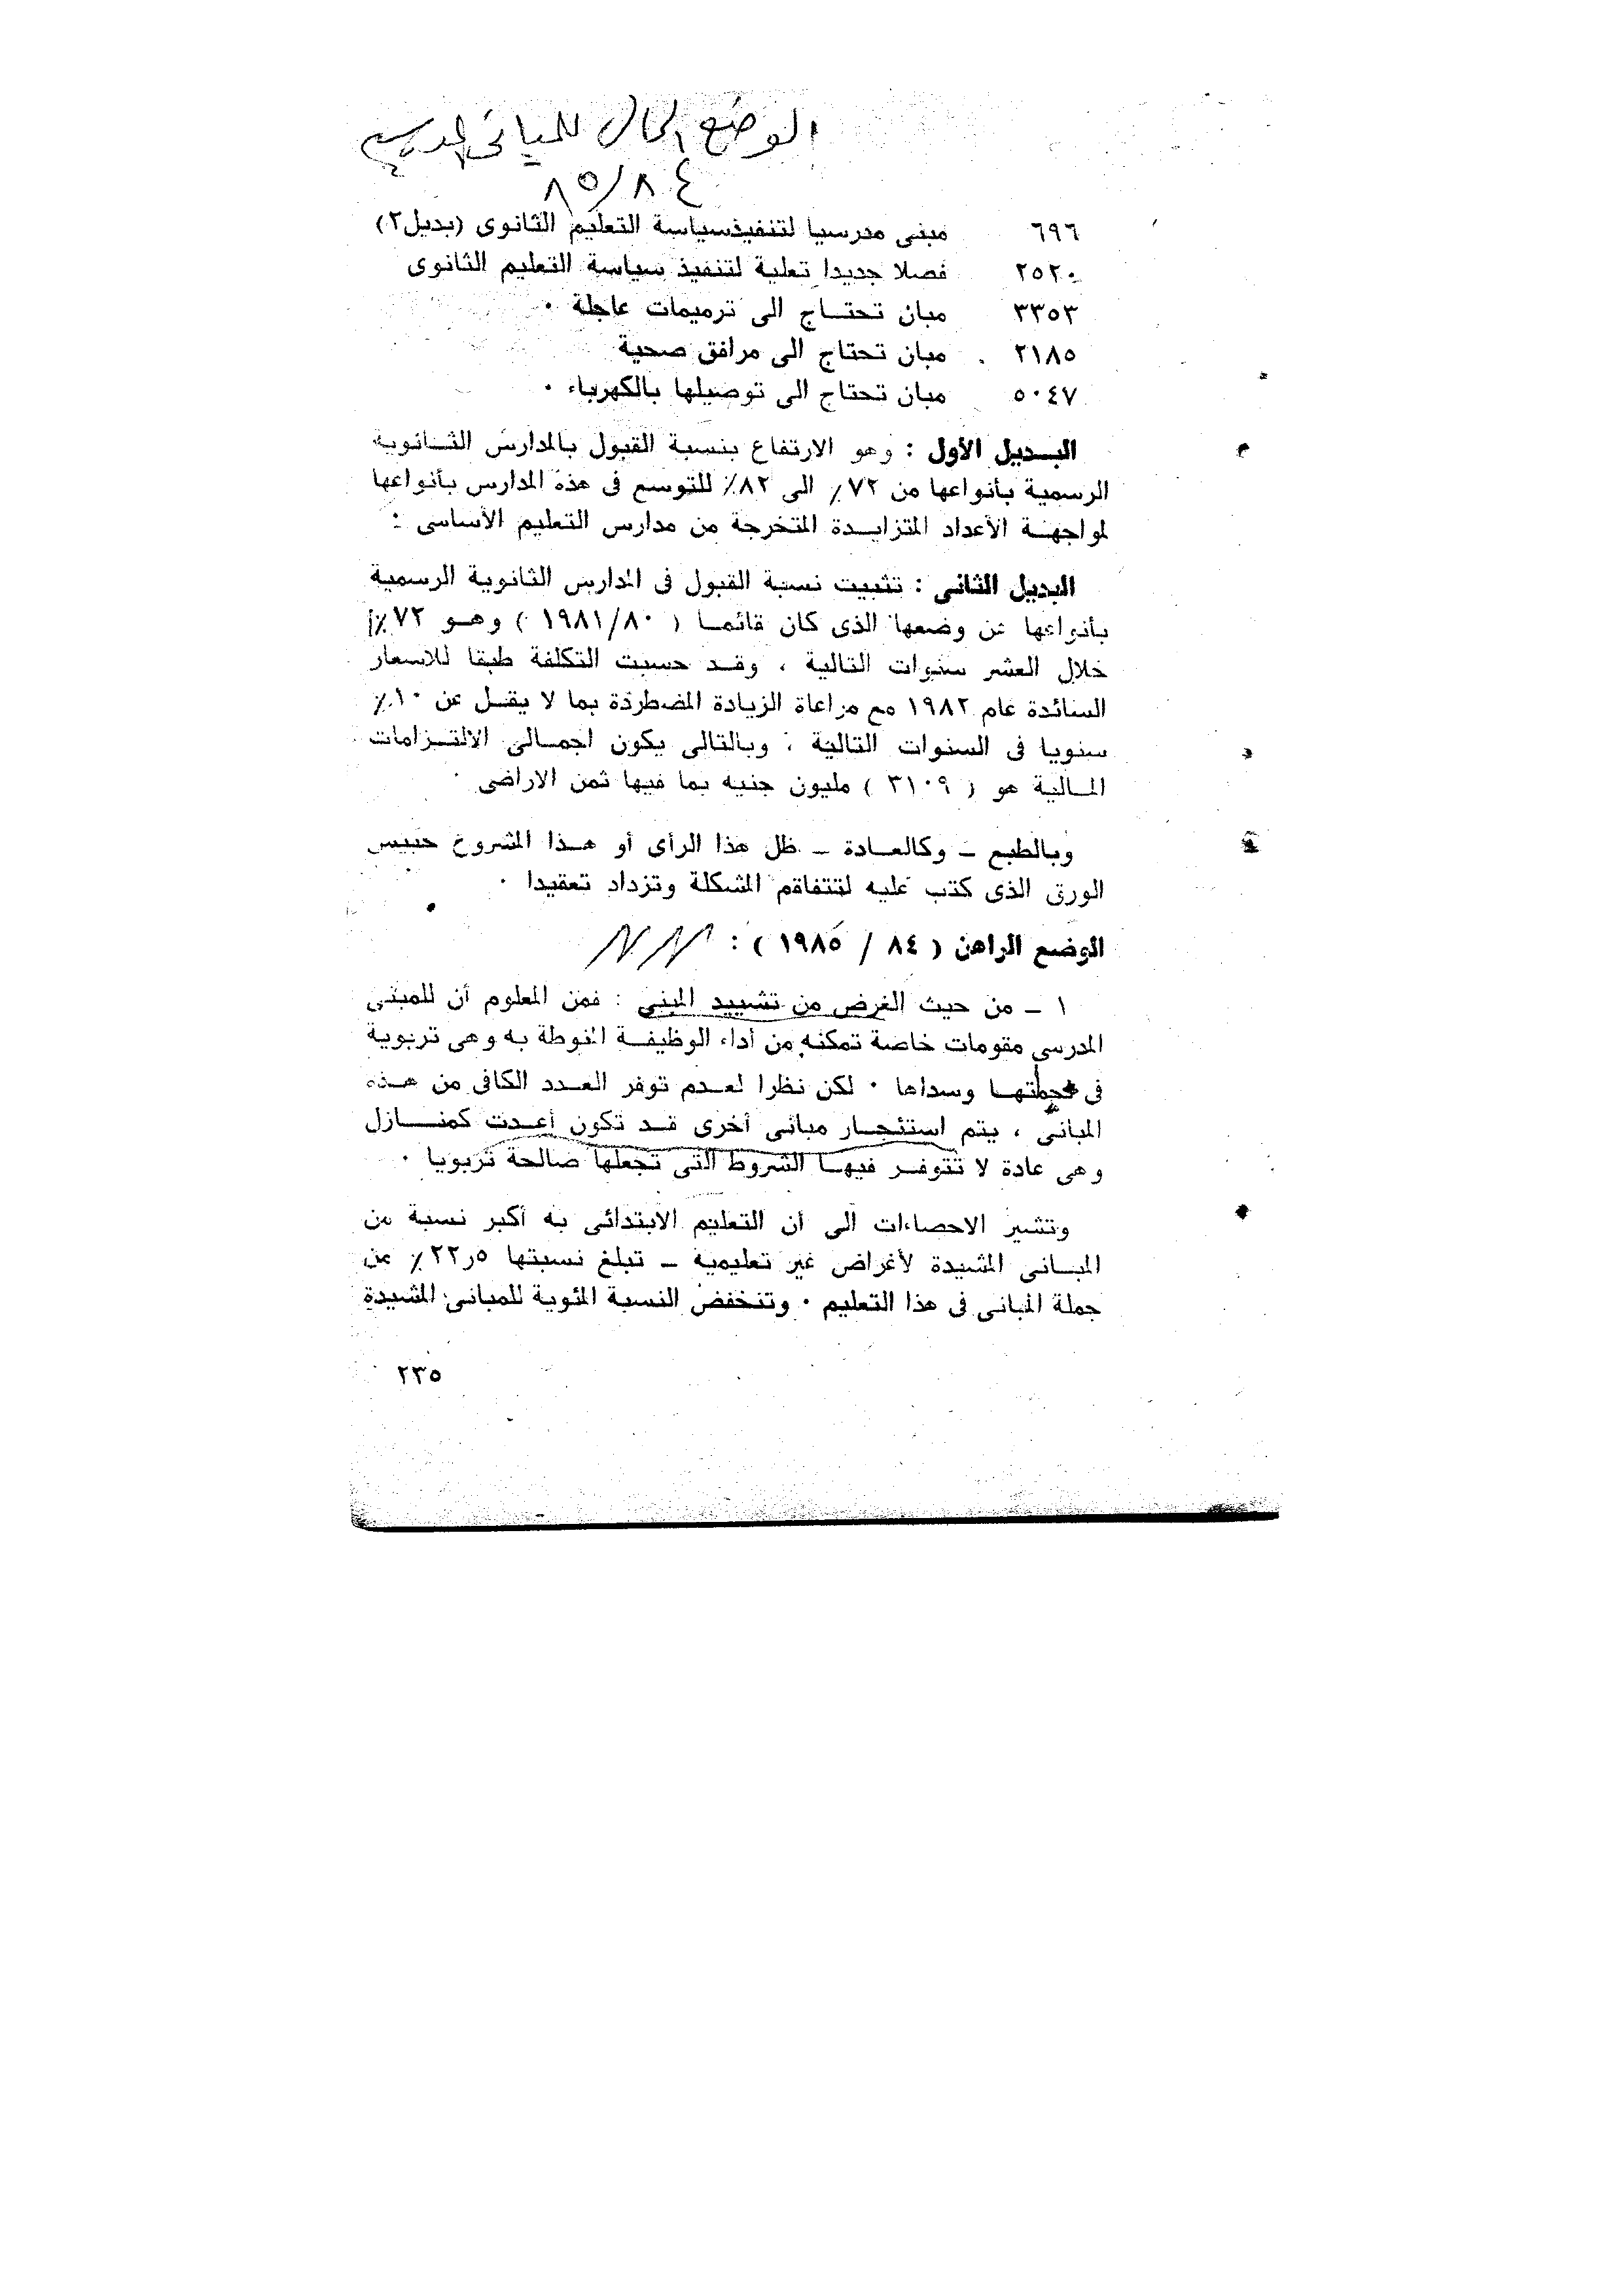 الوضع الحالى للمبانى المدرسية
٨٥/٨٤
٦٩٦ مبنى مدرسيا لتنفيذسياسة التعليم الثانوى (بديل٢)
٢٥٢٠ فصلا جديدا تعلية لتنفيذ سياسة التعليم الثانوى
٣٣٥٣ مبان تحتـــاج الى ترميمات عاجلة ٠
٢١٨٥ مبان تحتاج الى مرافق صحية
٥٠٤٧ مبان تحتاج الى توصيلها بالكهرباء ٠
البـــديل الأول : وهو الارتفاع بنسبة القبول بالمدارس الثــانوية
الرسمية بأنواعها من ٧٢٪ الى ٨٢٪ للتوسع فى هذه المدارس بأنواعها
لمواجهــة الأعداد المتزايــدة المتخرجة من مدارس التعليم الأساسى :
البديل الثانى : تثبيت نسبة القبول فى المدارس الثانوية الرسمية
بأنواعها عن وضعها الذى كان قائمــا ( ١٩٨١/٨٠ ) وهــو ٧٢٪
خلال العشر سنوات التالية ، وقــد حسبت التكلفة طبقا للاسعار
السائدة عام ١٩٨٢ مع مراعاة الزيادة المضطردة بما لا يقــل عن ١٠٪
سنويا فى السنوات التالية ، وبالتالى يكون اجمــالى الالتــزامات
المــالية هو ( ٣١٠٩ ) مليون جنيه بما فيها ثمن الاراضى ٠
وبالطبع ــ وكالعــادة ــ ظل هذا الرأى أو هــذا المشروع حبيس
الورق الذى كتب عليه لتتفاقم المشكلة وتزداد تعقيدا ٠
الوضع الراهن ( ٨٤ / ١٩٨٥ ) :
١ ــ من حيث الغرض من تشييد المبنى : فمن المعلوم أن للمبنى
المدرسى مقومات خاصة تمكنه من أداء الوظيفــة المنوطة به وهى تربوية
فى لحمتهــا وسداها ٠ لكن نظرا لعــدم توفر العــدد الكافى من هــذه
المبانى ، يتم استئجــار مبانى أخرى قــد تكون أعــدت كمنــــازل
وهى عادة لا تتوفــر فيهــا الشروط التى تجعلها صالحة تربويا ٠
وتشير الاحصاءات الى أن التعليم الابتدائى به أكبر نسبة من
المبــانى المشيدة لأغراض غير تعليمية ــ تبلغ نسبتها ٢٢٫٥٪ من
جملة المبانى فى هذا التعليم ٠ وتنخفض النسبة المئوية للمبانى المشيدة
٢٣٥